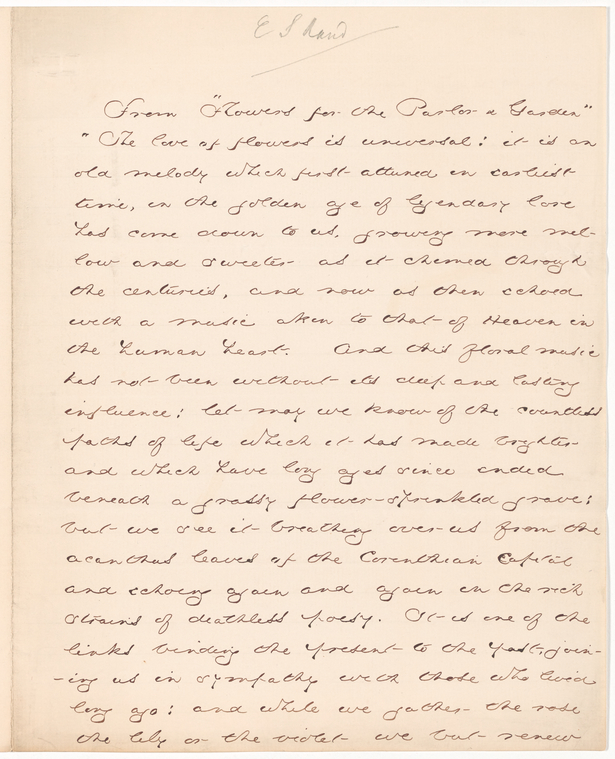 E S Rand
From "Flowers for the Parlor & Garden"
" The love of flowers is universal: it is an
old melody which first attuned in earliest
time, in the golden age of legendary lore
has come down to us, growing more mel-
low and sweeter as it chimed through
the centuries, and now as then echoed
with a music akin to that of Heaven in
the human heart. And this floral music
has not been without its deep and lasting
influence; let may we know of the countless
paths of life which it has made brighter
and which have long ages since ended
beneath a grassy flower-sprinkled grave;
but we see it breathing over us from the
acanthus leaves of the Corinthian Capital
and echoing again and again in the rich
strains of deathless poesy. It is one of the
links binding the present to the past, join-
-ing us in sympathy with those who lived
long ago: and while we gather the rose
the lily or the violet we but renew